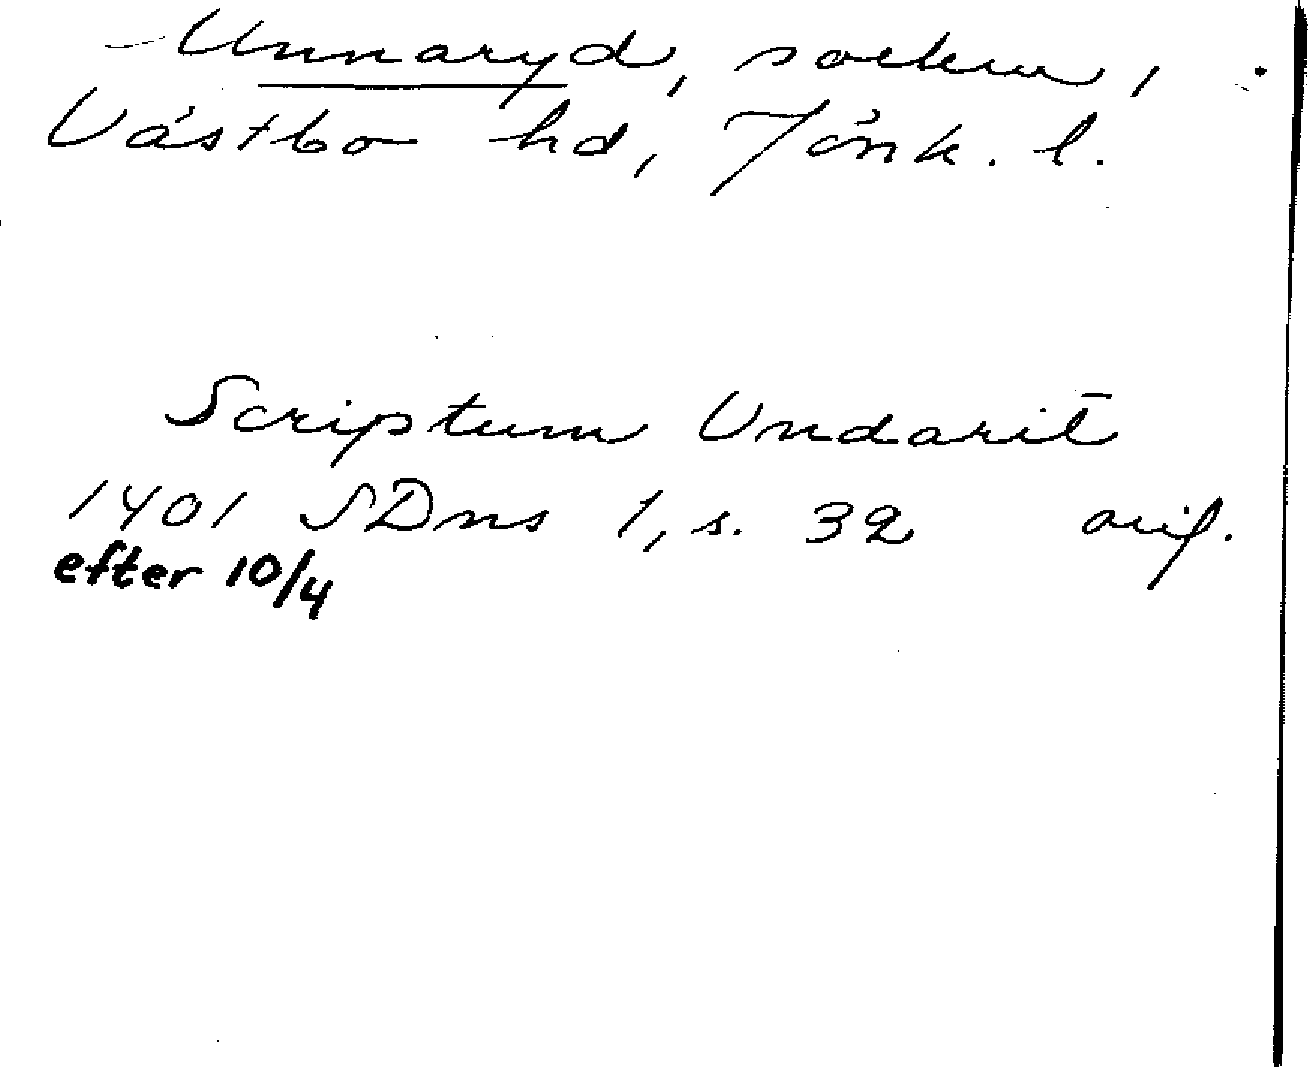 Unnaryd, socken,
Västbo hd, Jönk. l.
Scriptum Undarit̄
1401 SDns 1, s. 32 orig.
efter 10/4